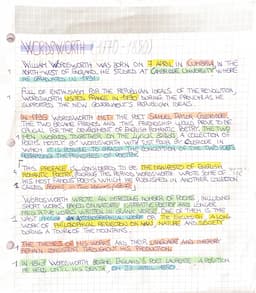 WORDSWORTH (1770-1850)
WILLIAM WORDSWORTH WAS BORN ON 7 APRIL IN CUMBRIA IN THE
NORTH-WEST OF ENGLAND. HE STUDIED AT CAMBRIDGE UNIVERSITY WHERE
HE GRADUATED IN 1791.
FULL OF ENTHUSIASM FOR THE REPUBLICAN IDEALS OF THE REVOLUTION,
WORDSWORTH VISITED FRANCE IN 1790 DURING THE PERIOD AS HE
SUPPORTED THE NEW GOVERNMENT'S REPUBLICAN IDEALS.
IN 1795 WORDSWORTH MET THE POET SAMUEL TAYLOR COLERIDGE.
THE TWO BECAME FRIENDS AND THIS FRIENDSHIP WOULD PROVE TO BE
CRUCIAL FOR THE DEVELOPMENT OF ENGLISH ROMANTIC POETRY. THE TWO
MEN WORKED TOGETHER ON THE LYRICAL BALLADS A COLLECTION OF
POEMS MOSTLY BY WORDSWORTH WITH JUST FOUR BY COLERIDGE IN
WHICH
THIS PREFACE IS CONSIDERED TO BE THE MANIFESTO OF ENGLISH
ROMANTIC POETRY. DURING THIS PERIOD WORDSWORTH WROTE SOME OF THE
HIS MOST FAMOUS POEMS WHICH HE PUBLISHED IN ANOTHER COLLECTION
CALLED POEMS IN TWO VOLUMES
WORDSWORTH WROTE AN EXTENSIVE NUMBER OF POEMS INCLUDING
SHORT WORKS, BASED ON NATURE
NARRATIVE WORKS WRITTEN IN BLANK VERSE. ONE OF THEM IS THE
LAST IS AN AUTOBIOGRAPHICAL WORK OR THE EXCURSION A LONG
WORK OF PHILOSOPHICAL REFLECTIONS ON MAN, NATURE AND SOCIETY
DURING A TOUR OF THE MOUNTAINS.
THE THEMES OF HIS WORKS AND THEIR LANGUAGE AND IMAGERY
REMAIN CONSISTENT THROUGHOUT HIS PRODUCTION.
IN 1843 WORDSWORTH BECAME ENGLAND'S POET LAUREATE A POSITION
HE HELD UNTIL HIS DEATH, ON 23 1850.